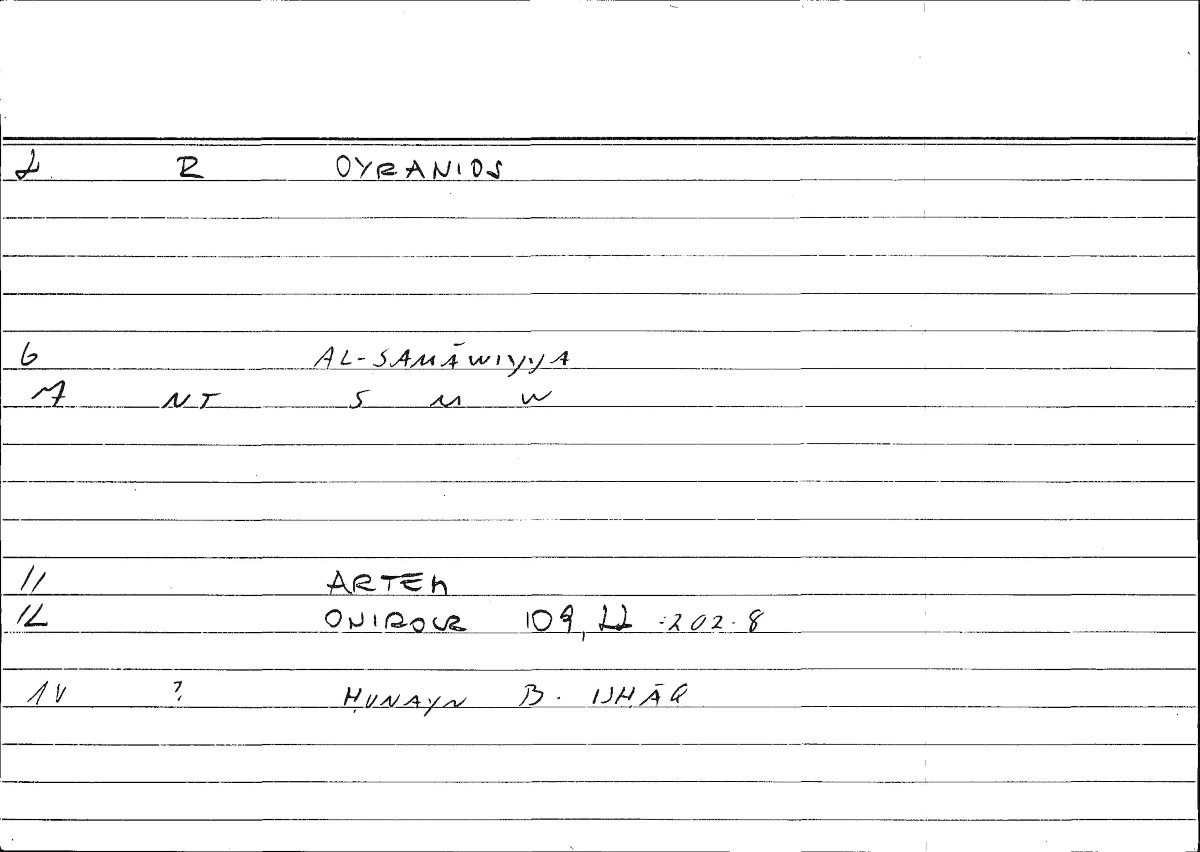 2 R OYRANIOS
6 AL-SAMĀWIYYA
7 NT S M W
11 ARTEM
12 ONIROCR 109, 22 :202.8
15 ? ḤUNAYN B. ISḤĀQ